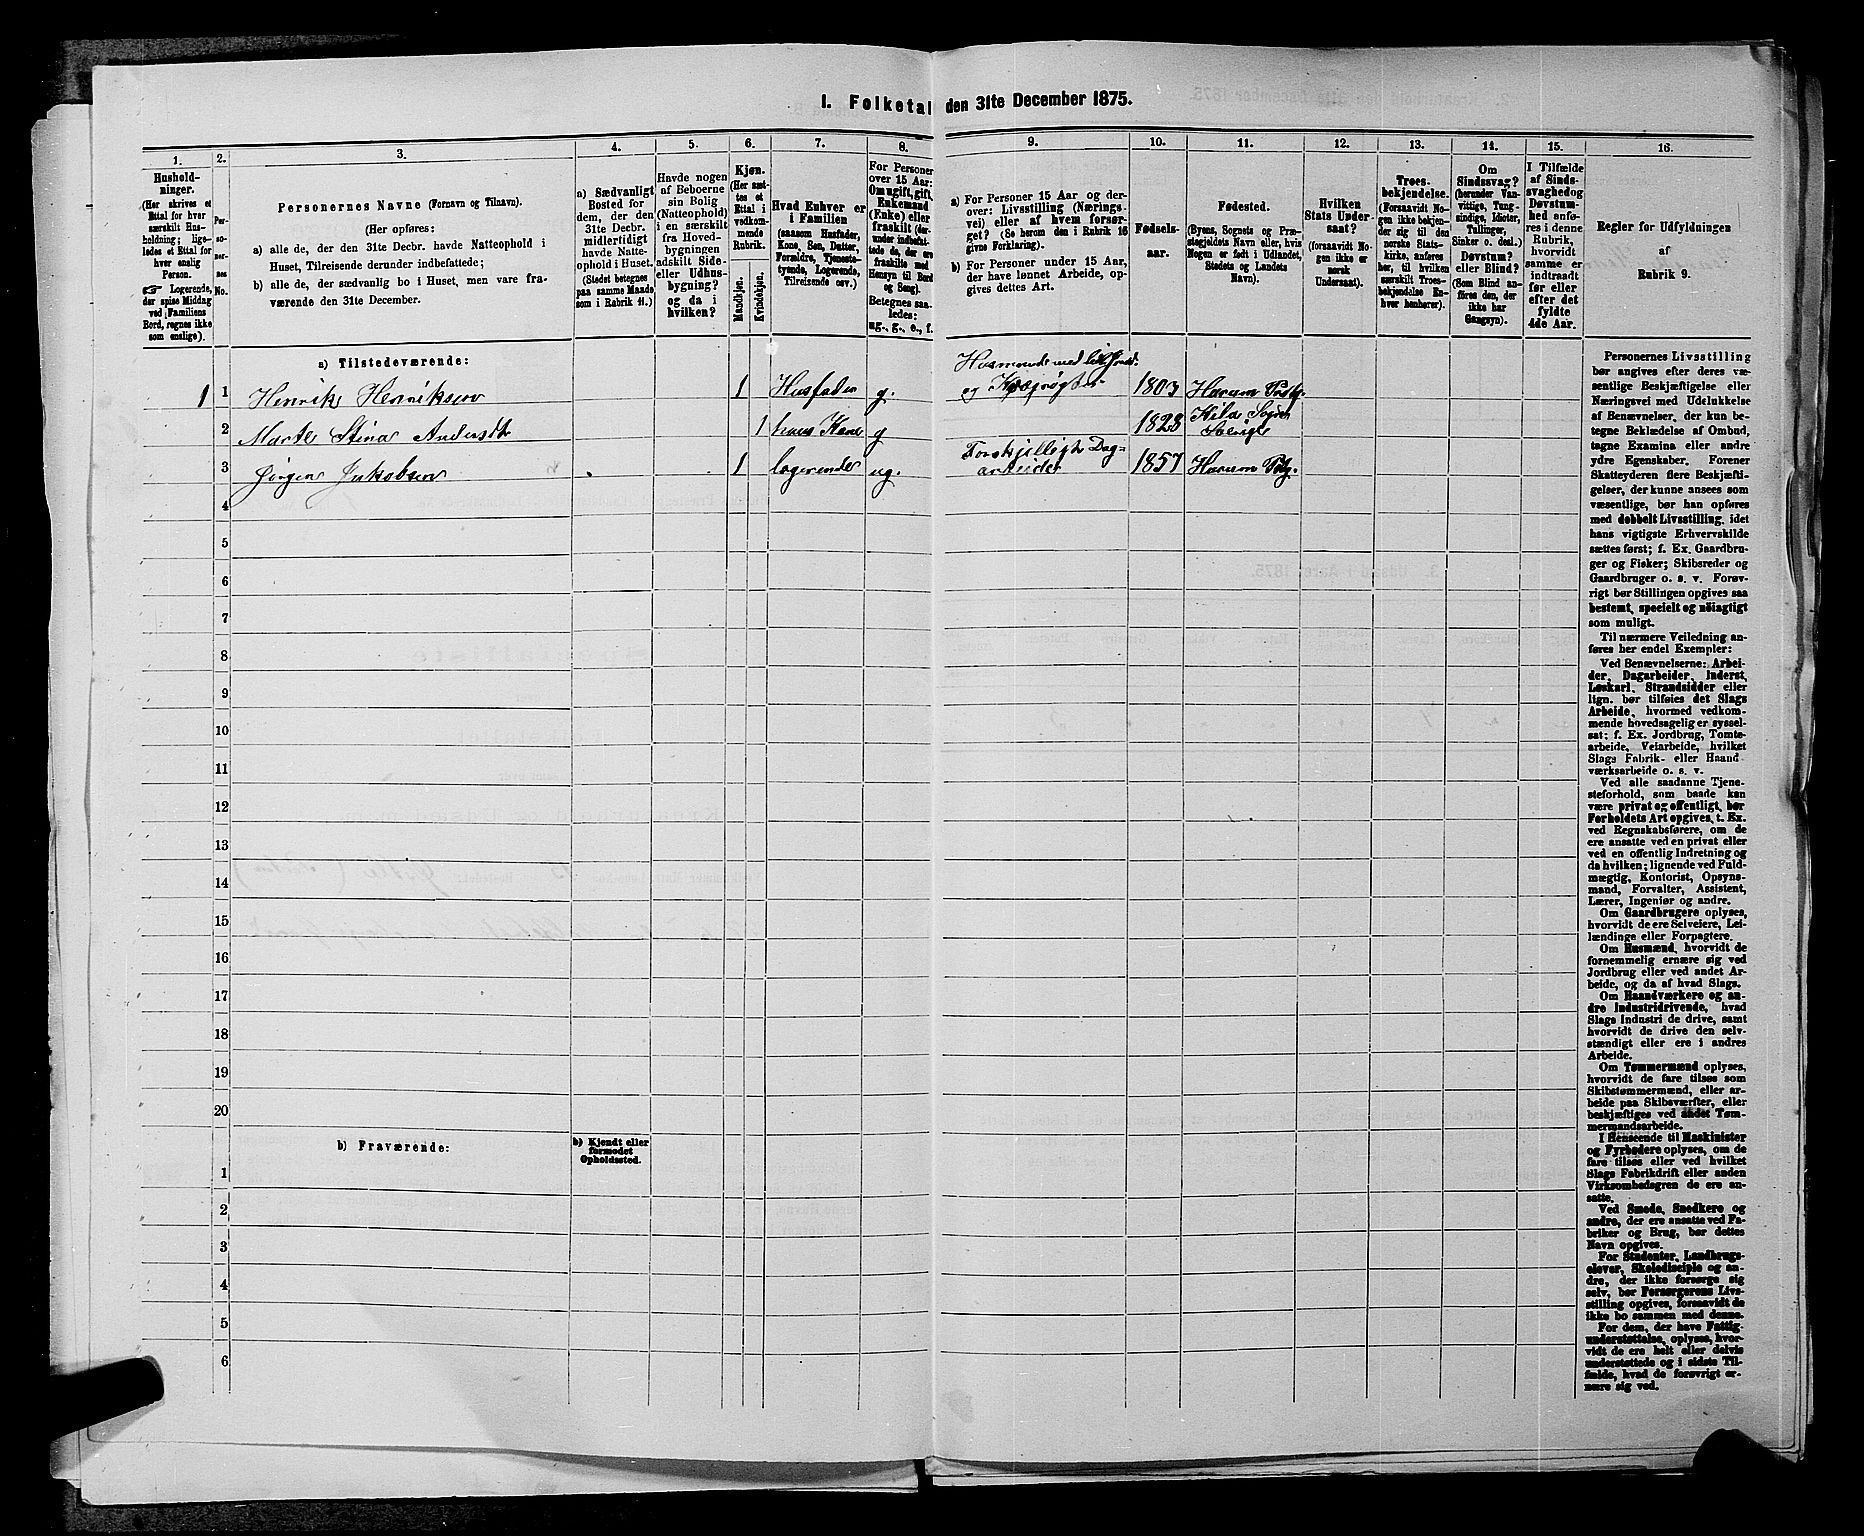 1. Folketal den 31te December 1875.
1.
Hushold-
ninger.
(Her skrives et
Ettal for hver
særskilt Hus-
holdning; lige-
ledes et Ettal for
hver enslig
Person.
☞ Logerende,
der spise Middag
ved Familiens
Bord, regnes ikke
som enslige).
2.
Per-
so-
ner-
nes
No.
3.
Personernes Navne (Fornavn og Tilnavn).
(Her opføres:
a) alle de, der den 31te Decbr. havde Natteophold i
Huset, Tilreisende derunder indbefattede;
b) alle de, der sædvanlig bo i Huset, men vare fra-
værende den 31te December.
4.
a) Sædvanligt
Bosted for
dem, der den
31te Decbr.
midlertidigt
havde Natte-
ophold i Huset.
(Stedet betegnes
paa samme Maade
som i Rubrik 11.)
5.
Havde nogen
af Beboerne
sin Bolig
(Natteophold)
i en særskilt
fra Hoved-
bygningen
adskilt Side-
eller Udhus-
bygning?
og da i
hvilken?
6.
Kjøn.
(Her sæt-
tes et
Ettal i
vedkom-
mende
Rubrik.
Mandkjøn.
Kvindekjøn.
7.
Hvad Enhver er
i Familien
(saasom Husfader,
Kone, Søn, Datter,
Forældre, Tjeneste-
tyende, Logerende,
Tilreisende osv.)
8.
For Personer
over 15 Aar:
Om ugift, gift,
Enkemand
(Enke) eller
fraskilt (der-
under indbefat-
tede de, der ere
fraskilte med
Hensyn til Bord
og Seng).
Betegnes saa-
ledes:
ug., g., e., f.
9.
a) For Personer 15 Aar og der-
over: Livsstilling (Nærings-
vei) eller af hvem forsør-
get? (Se herom den i Rubrik 16
givne Forklaring).
b) For Personer under 15 Aar,
der have lønnet Arbeide, op-
gives dettes Art.
10.
Fødsels-
aar.
11.
Fødested.
(Byens, Sognets og Præ-
stegjeldets Navn eller, hvis
Nogen er født i Udlandet,
Stedets og Landets
Navn).
12.
Hvilken
Stats Under-
saat?
(forsaavidt No-
gen ikke er
norsk
Undersaat).
13.
Troes-
bekjendelse.
(Forsaavidt No-
gen ikke bekjen-
der sig til den
norske Stats-
kirke, anføres
her, til hvilken
særskilt Troes-
bekjendelse En-
hver henhører).
14.
Om
Sindssvag?
(herunder Van-
vittige, Tung-
sindige, Idioter,
Tullinger,
Sinker o. desl.)
Døvstum?
eller Blind?
(Som Blind an-
føres den, der
ikke har
Gangsyn).
15.
I Tilfælde
af Sinds-
svaghed og
Døvstum-
hed anfø-
res i denne
Rubrik,
hvorvidt
samme er
indtraadt
før eller
efter det
fyldte
4de Aar.
16.
Regler for Udfyldningen
af
Rubrik 9.
a) Tilstedeværende:
Husmand med
1 1 Henrik Henriksen 1 Husfader g. og Kreaturrøgter 1803 Hurum Prstg.
2 Marte Stina Andersdt 1 hans Kone g 1828 Kila Sogn
Sverige
Forskjelligt Dag=
3 Jørgen Jakobsen 1 logerende ug. arbeide 1857 Hurum Pstg.
4
5
6
7
8
9
10
11
12
13
14
15
16
17
18
19
20
b) Fraværende:
b) Kjendt eller
formodet
Opholdssted.
1
2
3
4
5
6
Personernes Livsstilling
bør angives efter deres væ-
sentlige Beskjæftigelse eller
Næringsvei med Udelukkelse
af Benævnelser, der kun be-
tegne Beklædelse af Ombud,
tagne Examina eller andre
ydre Egenskaber. Forener
Skatteyderen flere Beskjæfti-
gelser, der kunne ansees som
væsentlige, bør han opføres
med dobbelt Livsstilling, idet
hans vigtigste Erhvervskilde
sættes først; f. Ex. Gaardbru-
ger og Fisker; Skibsreder og
Gaardbruger o. s. v. Forøv-
rigt bør Stillingen opgives saa
bestemt, specielt og nøiagtigt
som muligt.
Til nærmere Veiledning an-
føres her endel Exempler:
Ved Benævnelserne: Arbei-
der, Dagarbeider, Inderst,
Løskarl, Strandsidder eller
lign. bør tilføies det Slags
Arbeide, hvormed vedkom-
mende hovedsagelig er syssel-
sat; f. Ex. Jordbrug, Tomte-
arbeide, Veiarbeide, hvilket
Slags Fabrik- eller Haand
værksarbeide o. s. v.
Ved alle saadanne Tjene-
steforhold, som baade kan
være privat og offentligt, bør
Forholdets Art opgives, t. Ex.
ved Regnskabsførere, om de
ere ansatte ved en privat eller
ved en offentlig Indretning og
da hvilken; lignende ved Fuld-
mægtig, Kontorist, Opsyns-
mand, Forvalter, Assistent,
Lærer, Ingeniør og andre.
Om Gaardbrugere oplyses,
hvorvidt de ere Selveiere, Lei-
lændinge eller Forpagtere.
Om Husmænd, hvorvidt de
fornemmelig ernære sig ved
Jordbrug eller ved andet Ar-
beide, og da af hvad Slags.
Om Haandværkere og an-
dre Industridrivende, hvad
Slags Industri de drive, samt
hvorvidt de drive den selv-
stændigt eller ere i andres
Arbeide.
Om Tømmermænd oplyses,
hvorvidt de fare tilsøs som
Skibstømmermænd, eller ar-
beide paa Skibsværfter, eller
beskjæftiges ved andet Tøm-
mermandsarbeide.
I Henseende til Maskinister
og Fyrbødere oplyses, om de
fare tilsøs eller ved hvilket
Slags Fabrikdrift eller anden
Virksomhedsgren de ere an-
satte.
Ved Smede, Snedkere og
andre, der ere ansatte ved Fa-
briker og Brug, bør dettes
Navn opgives.
For Studenter, Landbrugs-
elever, Skoledisciple og an-
dre, der ikke forsørge sig
selv, bør Forsørgerens Livs-
stilling opgives, forsaavidt de
ikke bo sammen med denne.
For dem, der have Fattig-
understøttelse, oplyses, hvor-
vidt de ere helt eller delvis
understøttede og i sidste Til-
fælde, hvad de forøvrigt er-
nære sig ved.